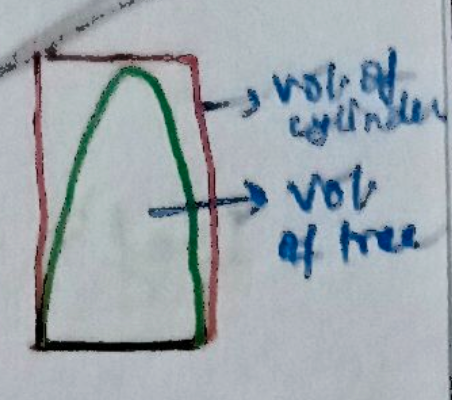 vol. of
cylinder
vol.
of tree